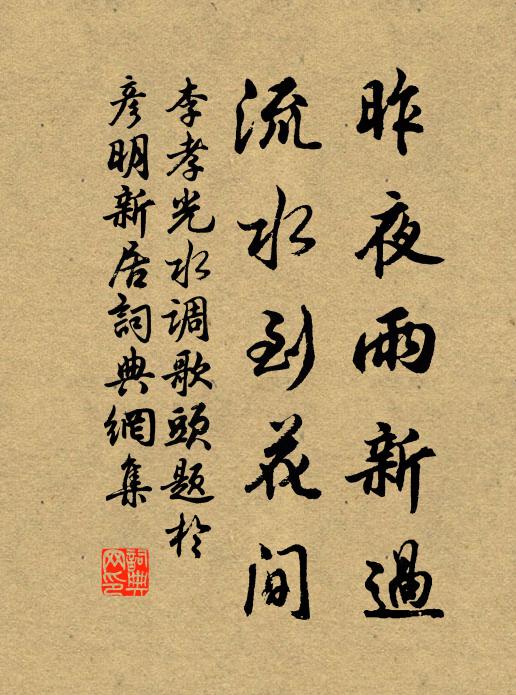 昨夜雨新過
流水到花間
李孝光水调歌頭題於
彦明新居詞典網集
詞典网印